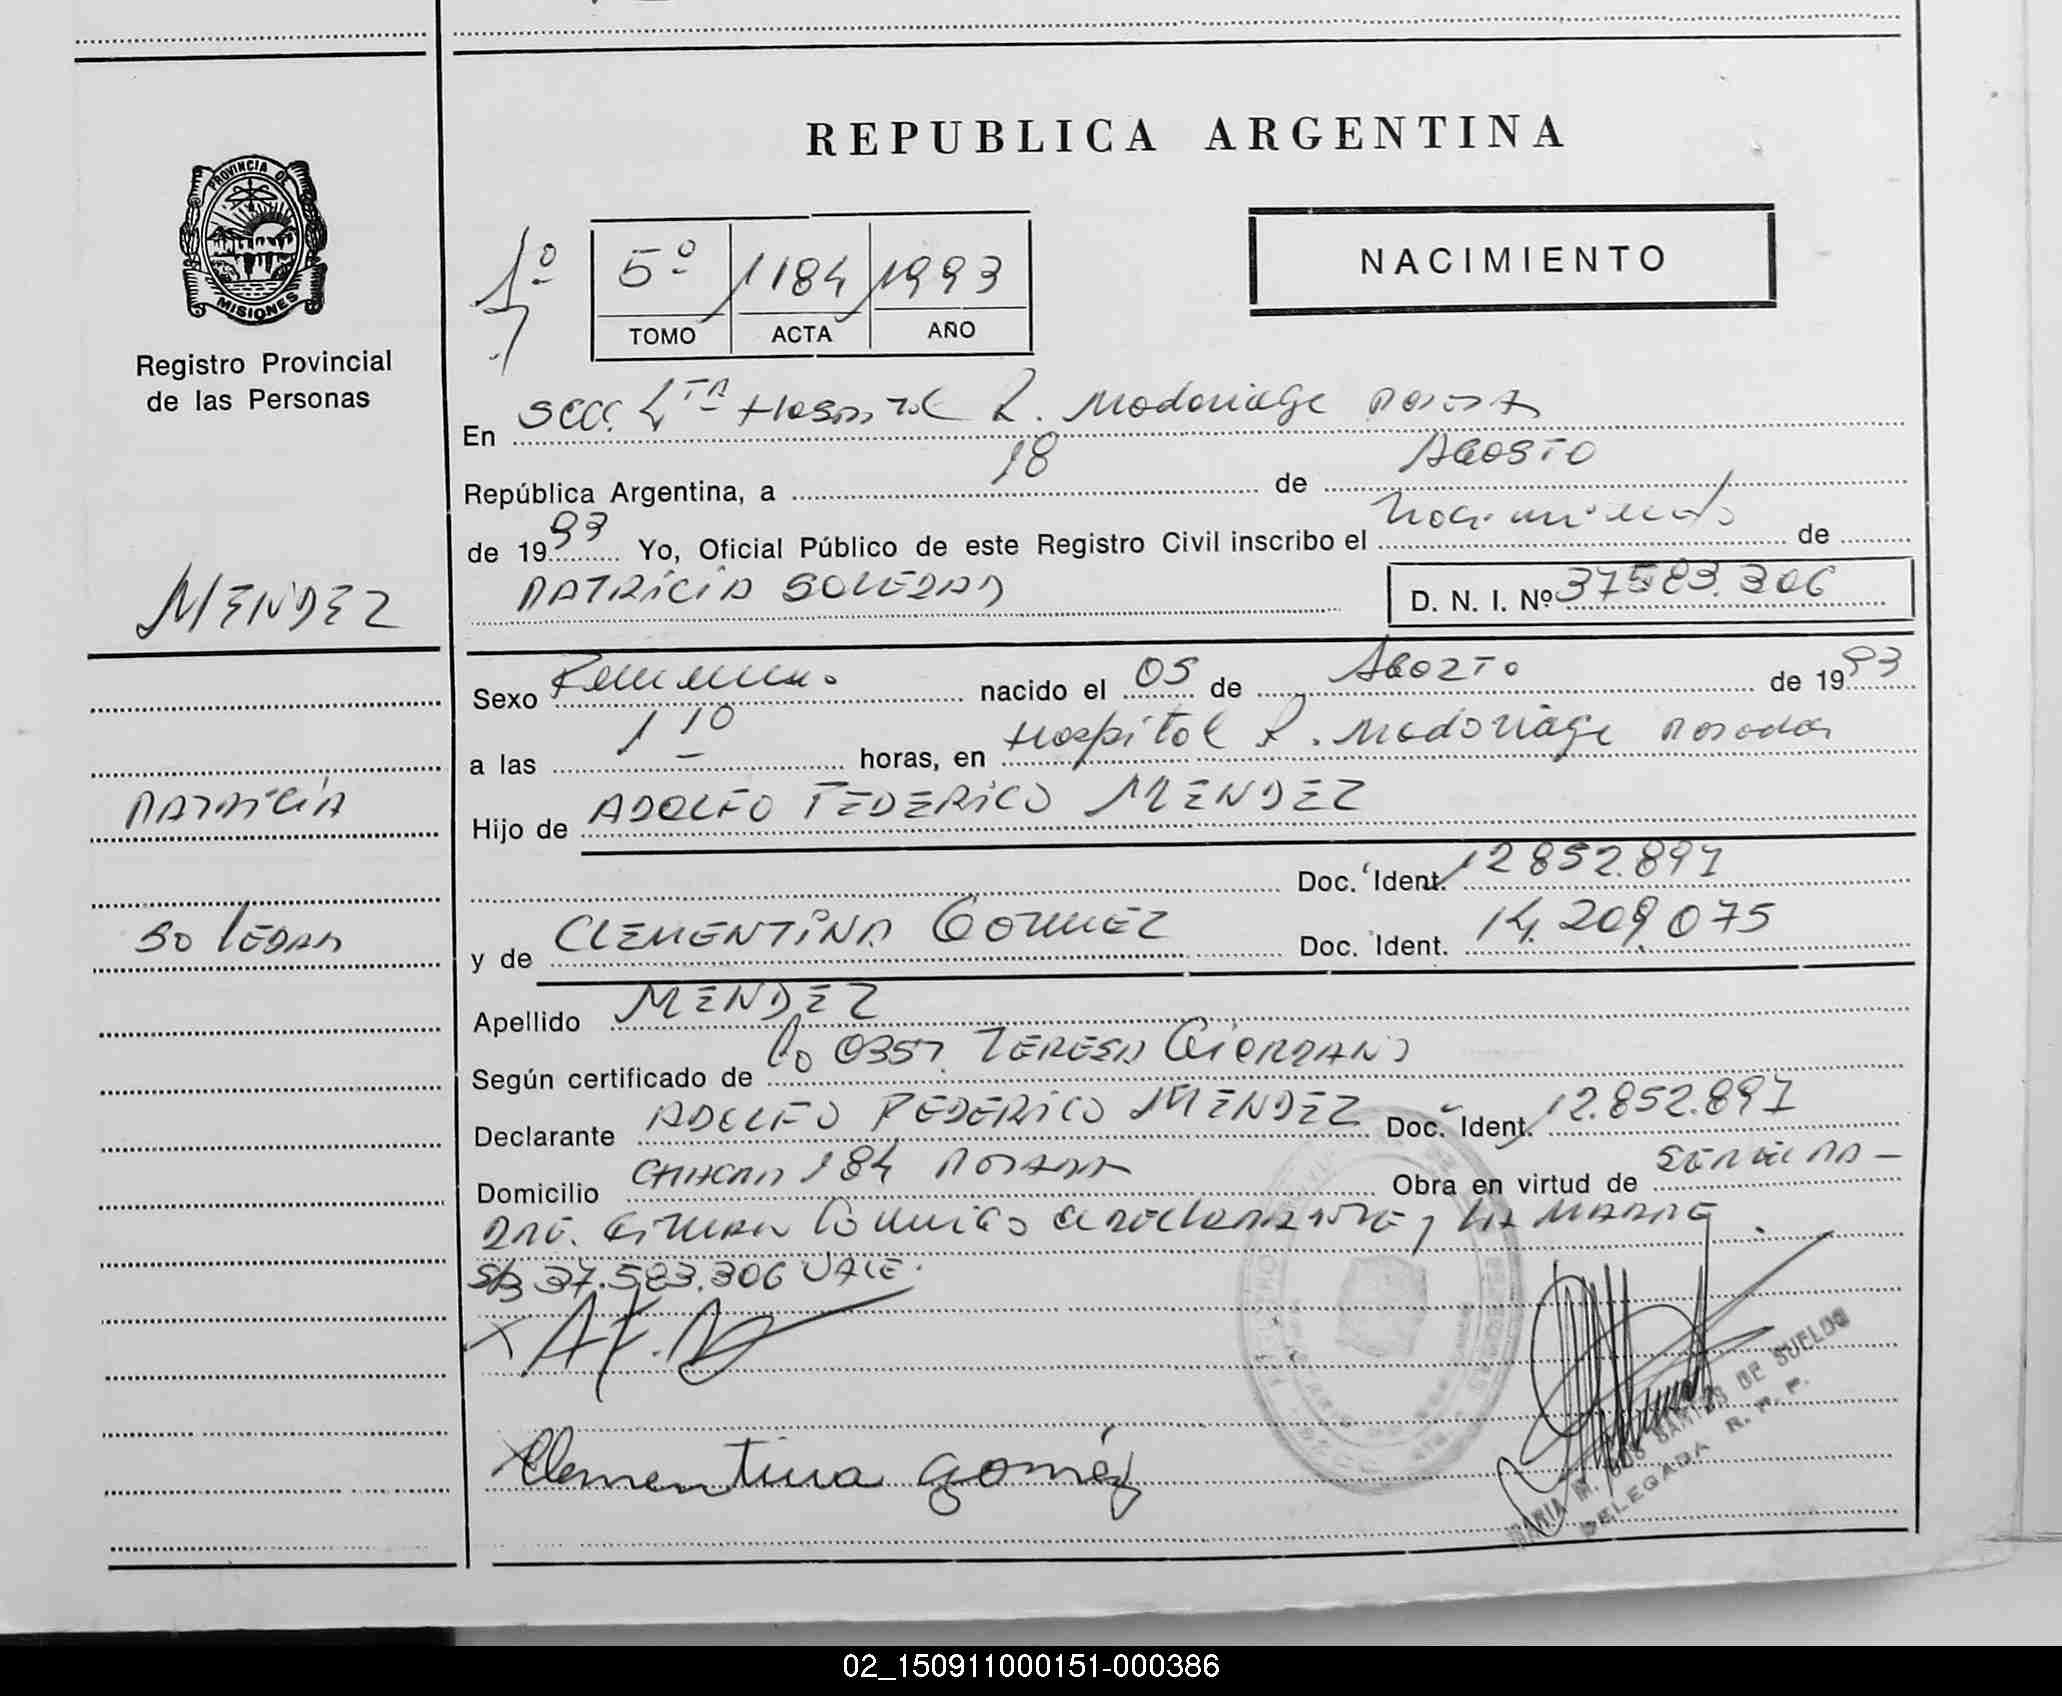 REPUBLICA ARGENTINA
PROVINCIA DE
MISIONES
Registro Provincial
de las Personas
NACIMIENTO
1º 5º 1184 1993
TOMO ACTA AÑO
En Secc. 4ta Hospital R. Madariaga Posadas
República Argentina, a 18 de Agosto
de 1993 Yo, Oficial Público de este Registro Civil inscribo el nacimiento de
PATRICIA SOLEDAD D. N. I. Nº 37583.306
MENDEZ
Sexo Femenino nacido el 05 de Agosto de 1993
a las 1 10 horas, en Hospital R. Madariaga Posadas
PATRICIA
Hijo de ADOLFO FEDERICO MENDEZ
Doc. Ident. 12852.897
SOLEDAD
y de CLEMENTINA GOMEZ Doc. Ident. 14.209.075
Apellido MENDEZ
Según certificado de 0357 TERESA GIORDANO
Declarante ADOLFO FEDERICO MENDEZ Doc. Ident. 12.852.897
Domicilio CHACRA 184 POSADAS Obra en virtud de SER EL PA-
DRE. FIRMAN CONMIGO EL DECLARANTE Y LA MADRE.
S/B 37.583.306 VALE.
Clementina gomez
MARIA M. DOS SANTOS DE SUELDO
DELEGADA R. P. P.
02_150911000151-000386